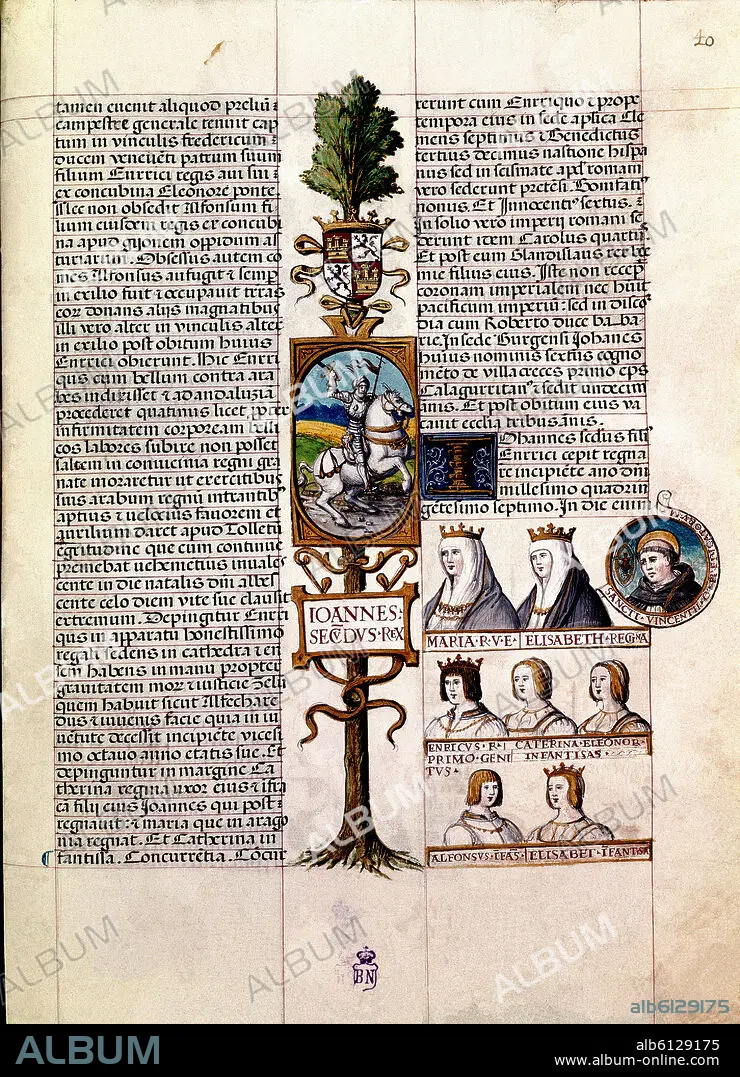 40
tamen evenit aliquod preliũ ⁊
campestre generale tenuit cap
tum in vinculis fredericum
ducem veneuẽti patrum suum
filium Enrici regis aui sui ⁊
ex concubina Eleonore ponte.
Hic non obsedit Alfonsum fi
lium eiusdem regis ex concubi
na apud gijonem oppidum as
turiarum. Obsessus autem co
mes Alfonsus aufugit ⁊ semp
in exilio fuit ⁊ occupauit terras
cor donans alijs magnatibus
illi vero alter in vinculis alter
in exilio post obitum huius
Enrici obierunt. Hic Enri
qus cum bellum contra ara
bes indixisset ⁊ ad andaluzia
procederet quatinus licet, ppter
infirmitatem corpoream belli
cos labores subire non posset
saltem in convicinia regni gra
nate moraretur ut exercitibus
suis arabum regnũ intrantibus
aptius ⁊ velocius fauorem et
auxilium daret apud Tolletũ
egritudine que eum continue
premebat vehemetius inuales
cente in die natalis dnĩ albes
cente celo diem vite sue clausit
extremum. Depingitur Enri
qus in apparatu honestissimo
regali sedens in cathedra ⁊ en
sem habens in manu propter
grauitatem mor ⁊ iusticie zelũ
quem habuit sicut Alfechare
dus ⁊ iuuenis facie quia in iu
uẽtute decessit incipiẽte vicesi
mo octauo anno etatis sue. Et
depinguntur in margine Ca
therina regina uxor eius ⁊ ifra
ca filij eius Joannes qui post
regnauit: ⁊ maria que in arago
nia regnat. Et Catherina in
fantissa. Concurrẽtia. Cõcur
IOANNES:
SECDVS·REX
rerunt cum Enriquo ⁊ prope
tempora eius in sede apsĩica Cle
mens septimus ⁊ Benedictus
tertius decimus nastione hispa
nus sed in scismate apd' romam
vero sederunt pretẽsi. Bonifati'
nonus. Et Innocenti' sextus. ⁊
In solio vero imperij romani se
derunt item Carolus quartus
Et post eum Glandislaus rex boe
mie filius eius. Iste non recep̃
coronam imperialem nec huit
pacificum imperiũ: sed in disco
dia cum Roberto duce ba ba
rie. In sede Burgensi Johanes
huius nominis sextus cogno
mẽto de villa creces primo ep̃s
Calagurritan' ⁊ sedit undecim
annis. Et post obitum eius va
cauit ecclia tribus anis.
Ohannes sedus fili'
Enrici cepit regna
re incipiẽte ano dni
millesimo quadrin
getesimo septimo. In die eum
SANCTI·VINCENTII
MARIA·R·V·E·
ELISABETH·REGINA
ENRICVS·R·I
PRIMO·GENI
TVS·
CATERINA·ELEONOR·
INFANTISAS·
ALFONSVS·IFAS·
ELISABET·IFANTISA
BN
ALBUM
alb6129175
ALBUM
alb6129175
www.album-online.com